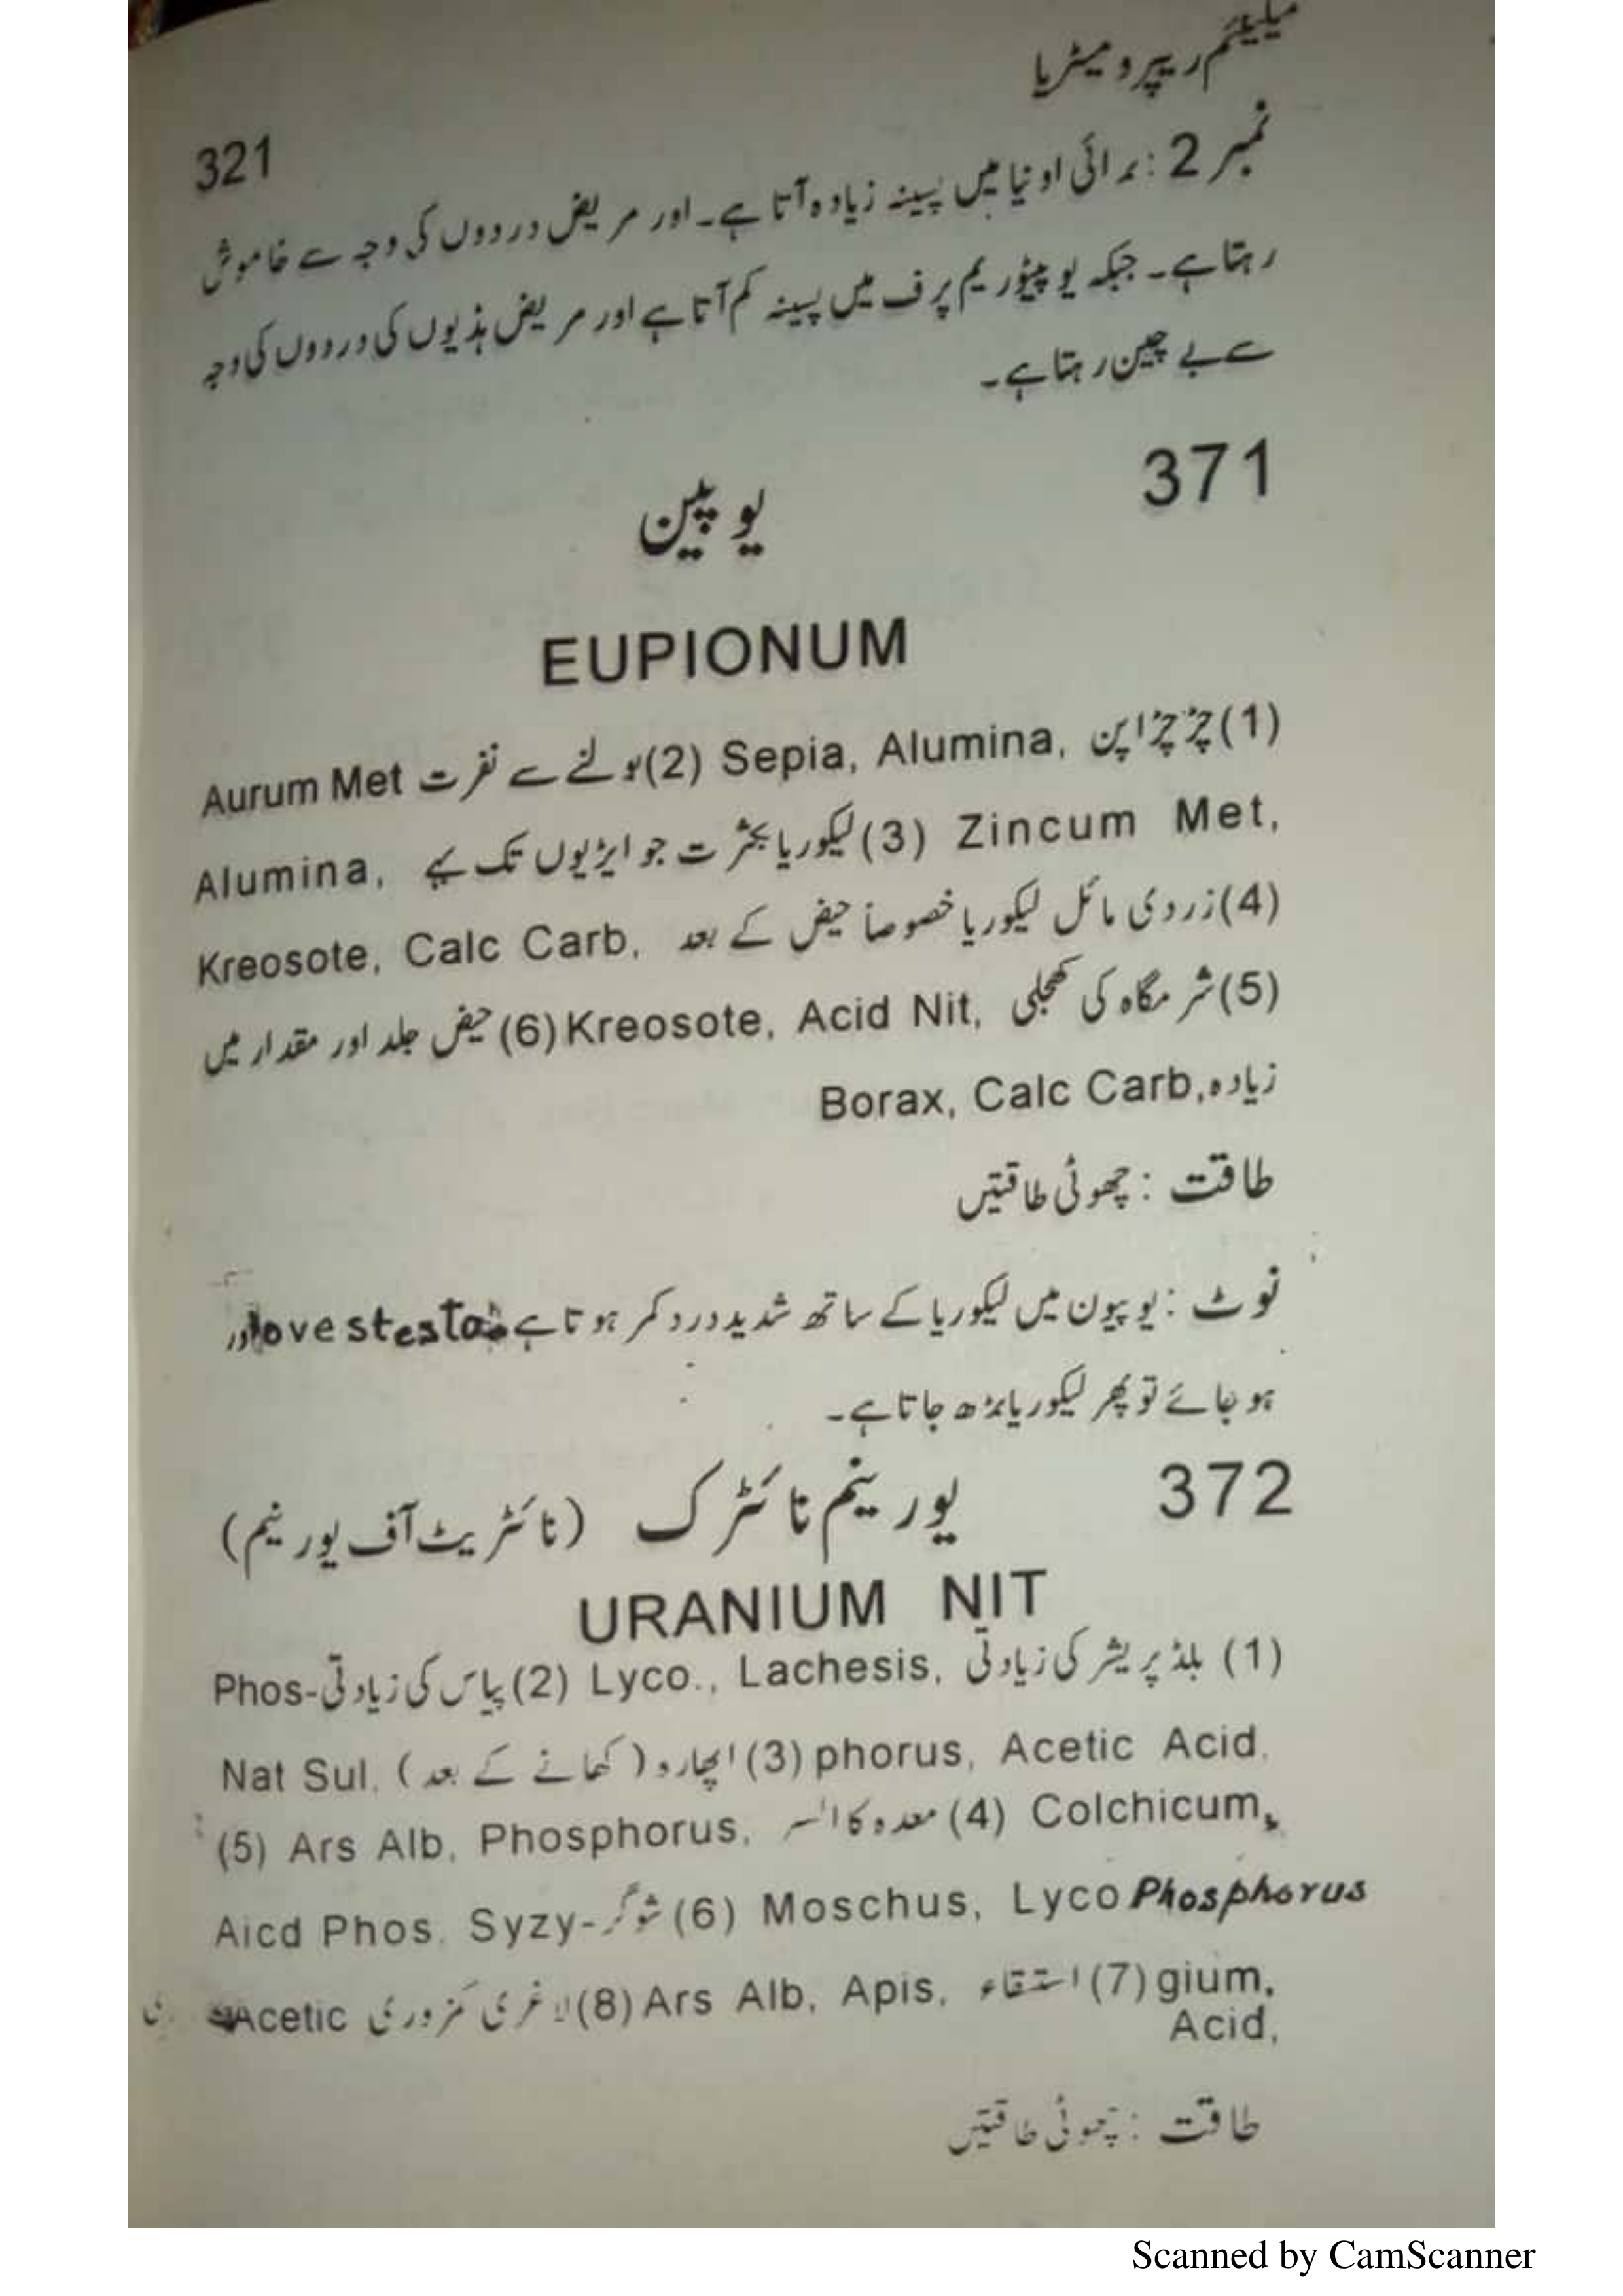 ریپرو میٹریا
321
نمبر 2 : برائی اونیا میں پسینہ زیادہ آتا ہے۔ اور مریض دردوں کی وجہ سے خاموش
رہتا ہے۔ جبکہ یوپیٹوریم پرف میں پسینہ کم آتا ہے اور مریض ہڈیوں کی دردوں کی وجہ
سے بے چین رہتا ہے۔
371
یوپین
EUPIONUM
(1) چڑچڑاپن Sepia, Alumina, (2) بولنے سے نفرت Aurum Met
Zincum Met, (3) لیکوریا بکثرت جو ایڑیوں تک بہے Alumina,
(4) زردی مائل لیکوریا خصوصاً حیض کے بعد Kreosote, Calc Carb,
(5) شرمگاہ کی کھجلی Kreosote, Acid Nit, (6) حیض جلد اور مقدار میں
زیادہ Borax, Calc Carb,
طاقت : چھوٹی طاقتیں
نوٹ : یوپیون میں لیکوریا کے ساتھ شدید درد کمر ہوتا ہے اور
ہو جائے تو پھر لیکوریا بڑھ جاتا ہے۔
372
یورینیم نائٹرک (نائٹریٹ آف یورنیم)
URANIUM NIT
(1) بلڈ پریشر کی زیادتی Lyco., Lachesis, (2) پیاس کی زیادتی Phos-
phorus, Acetic Acid, (3) اپھارہ (کھانے کے بعد) Nat Sul,
Colchicum, (4) معدہ کا السر Ars Alb, Phosphorus, (5)
Phosphorus Moschus, Lyco (6) شوگر Aicd Phos, Syzy-
gium, (7) استسقاء Ars Alb, Apis, (8) لاغری کمزوری Acetic
Acid,
طاقت : چھوٹی طاقتیں
Scanned by CamScanner